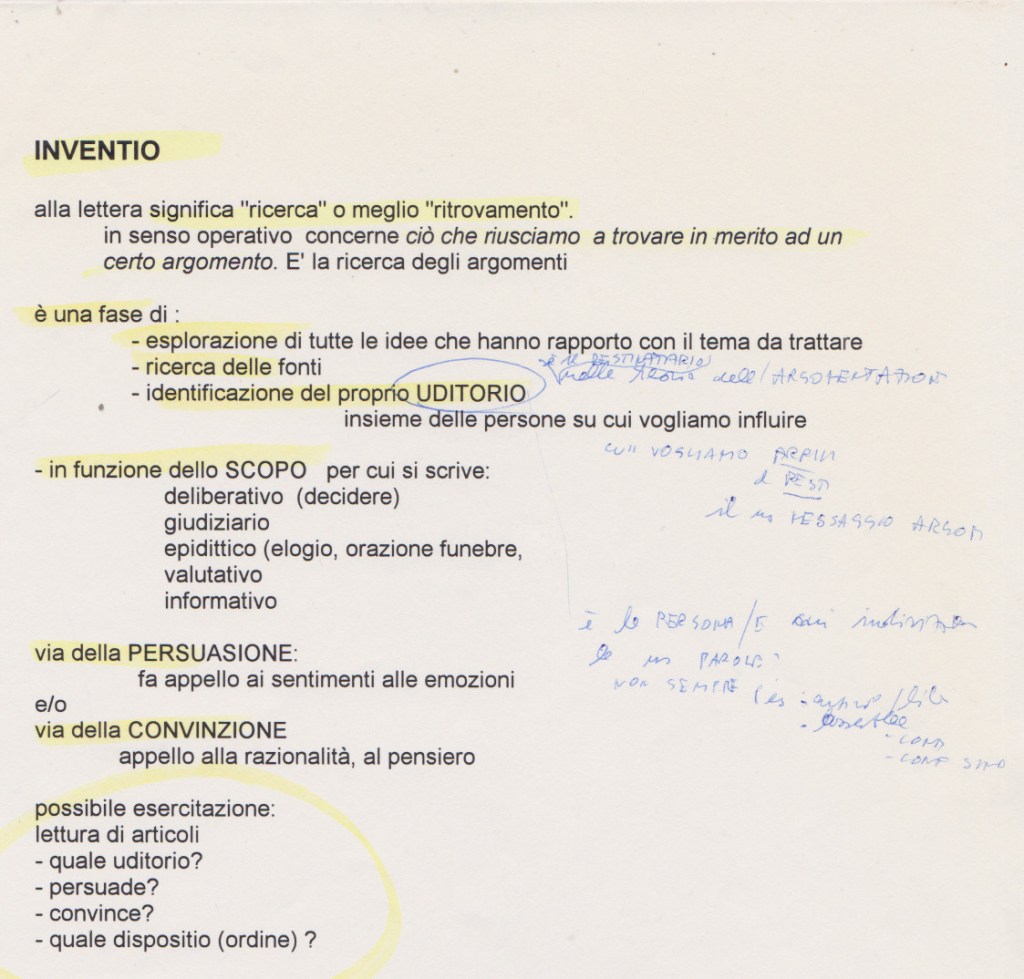 INVENTIO
alla lettera significa "ricerca" o meglio "ritrovamento".
in senso operativo concerne ciò che riusciamo a trovare in merito ad un
certo argomento. E' la ricerca degli argomenti
è una fase di :
- esplorazione di tutte le idee che hanno rapporto con il tema da trattare
- ricerca delle fonti
è il DESTINATARIO
dell'ARGOMENTATION
- identificazione del proprio UDITORIO
insieme delle persone su cui vogliamo influire
VOGLIAMO
- in funzione dello SCOPO per cui si scrive:
deliberativo (decidere)
giudiziario
MESSAGGIO ARGOM
epidittico (elogio, orazione funebre,
valutativo
informativo
è la PERSONA/E
via della PERSUASIONE:
PAROLE
fa appello ai sentimenti alle emozioni
NON SEMPRE
e/o
via della CONVINZIONE
appello alla razionalità, al pensiero
possibile esercitazione:
lettura di articoli
- quale uditorio?
- persuade?
- convince?
- quale dispositio (ordine) ?